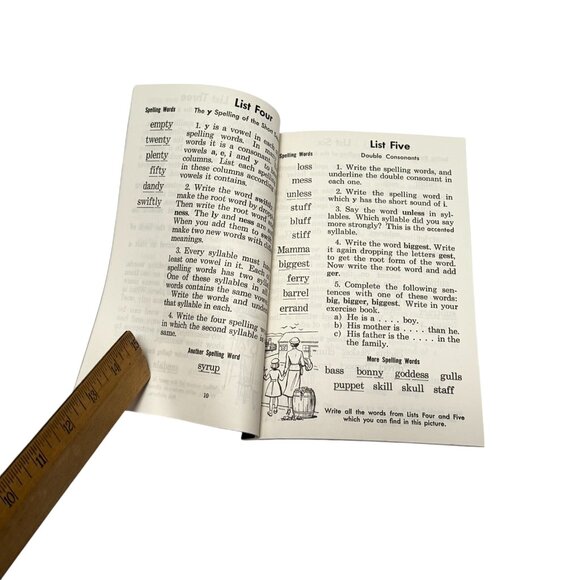 List Four
The y Spelling of the Short
Spelling Words
empty
twenty
plenty
fifty
dandy
swiftly
1. y is a vowel in each
spelling words. In
words it is a consonant.
vowels a, e, i and y to
columns. List each
in these columns
vowels it contains.
2. Write the word
make the root word by
Then write the root word
ness. The ly and ness are
When you add them
make two new words with
meanings.
3. Every syllable must
least one vowel in it. Each
spelling words has two
One of these syllables in
words contains the same
Write the words and
that syllable in each.
4. Write the four spelling
in which the second syllable is
same.
Another Spelling Word
syrup
10
List Five
Double Consonants
Spelling Words
loss
mess
unless
stuff
bluff
stiff
Mamma
biggest
ferry
barrel
errand
1. Write the spelling words, and
underline the double consonant in
each one.
2. Write the spelling word in
which y has the short sound of i.
3. Say the word unless in syl-
lables. Which syllable did you
say more strongly? This is the accented
syllable.
4. Write the word biggest. Write
it again dropping the letters gest,
to get the root form of the word.
Now write the root word and add
ger.
5. Complete the following sen-
tences with one of these words:
big, bigger, biggest. Write in your
exercise book.
a) He is a .... boy.
b) His mother is ..... than he.
c) His father is the .... in
the family.
More Spelling Words
bass bonny goddess gulls
puppet skill skull staff
Write all the words from Lists Four and Five
which you can find in this picture.
10
11
12
13